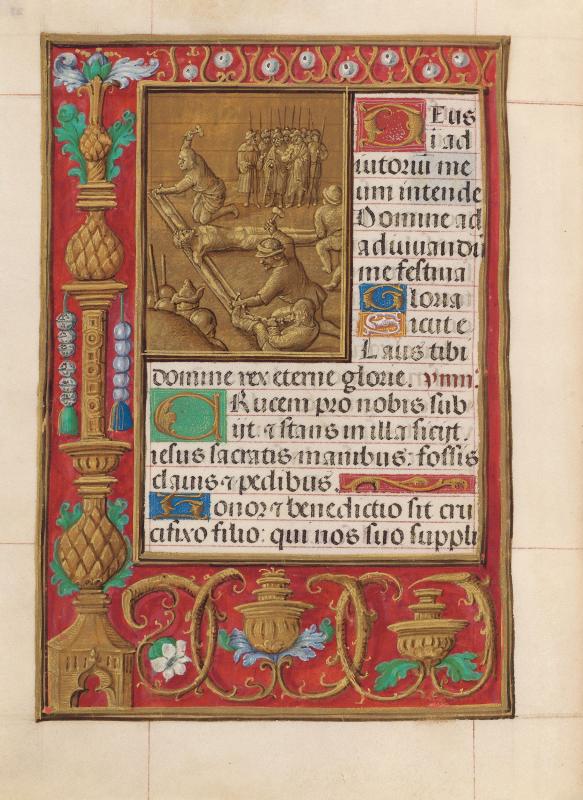 Deus
i ad
iutoriu me
um intende
Domine ad
adiuuandū
me festina
Gloria
Sicut e
Laus tibi
domine rex eterne glorie. ymn.
CRucem pro nobis sub
iit ⁊ stans in illa siciit.
iesus sacratis manibus: fossis
clauis ⁊ pedibus.
Honor ⁊ benedictio sit cru
cifixo filio: qui nos suo suppli